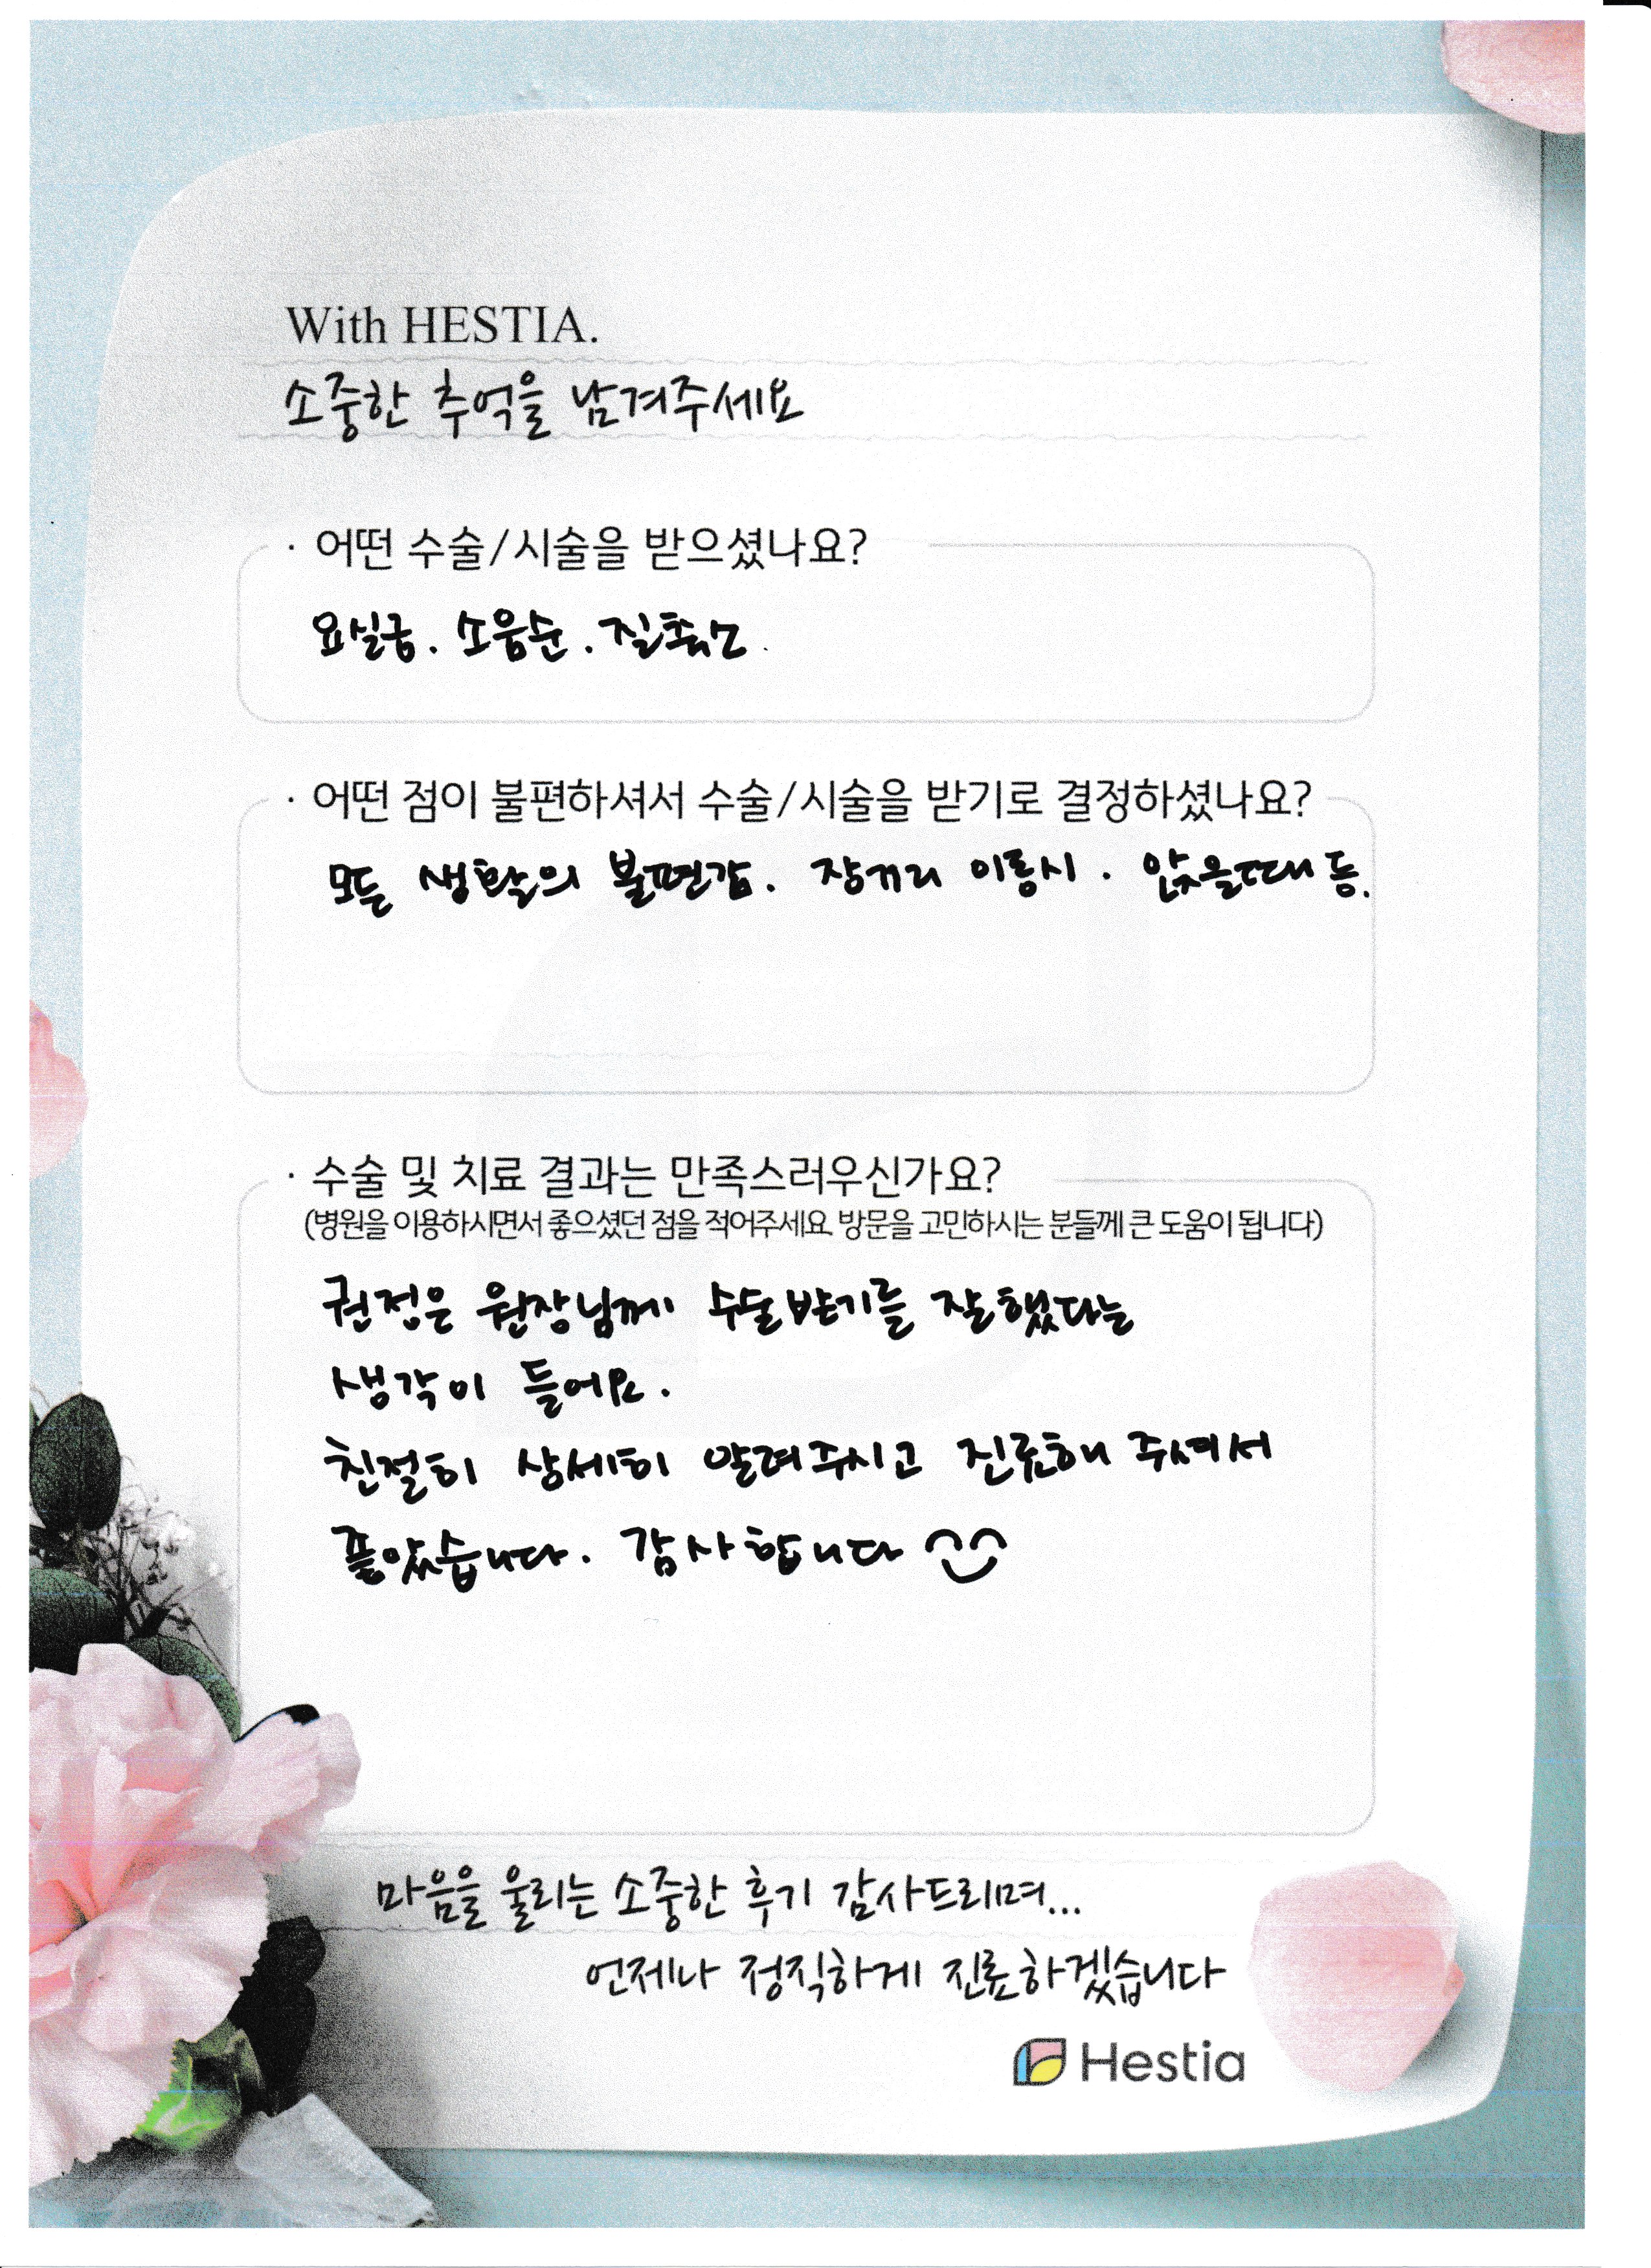 With HESTIA.
소중한 추억을 남겨주세요
· 어떤 수술/시술을 받으셨나요?
요실금. 소음순. 질축소.
· 어떤 점이 불편하셔서 수술/시술을 받기로 결정하셨나요?
모든 생활의 불편감. 장거리 이동시. 앉을때 등.
· 수술 및 치료 결과는 만족스러우신가요?
(병원을 이용하시면서 좋으셨던 점을 적어주세요. 방문을 고민하시는 분들께 큰 도움이 됩니다)
권정은 원장님께 수술받기를 잘했다는
생각이 들어요.
친절히 상세히 알려주시고 진료해 주셔서
좋았습니다. 감사합니다
마음을 울리는 소중한 후기 감사드리며...
언제나 정직하게 진료하겠습니다
Hestia